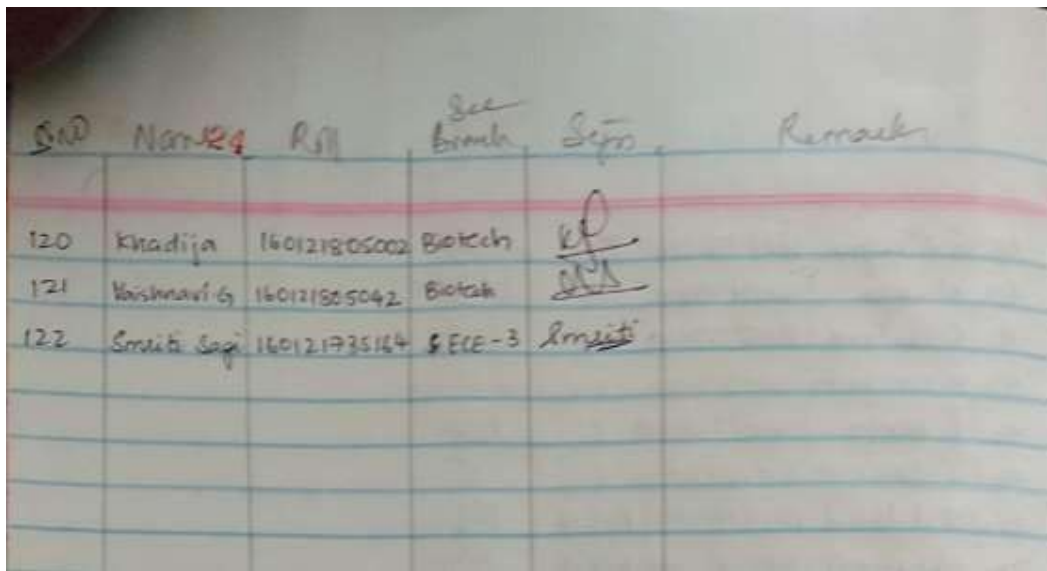 Sec
S.NO Name 124 Roll Branch Sign Remarks
120 Khadija 160121805002 Biotech
121 Vaishnavi G 160121805042 Biotech
122 Smriti Sagi 160121735164 ECE-3 Smriti